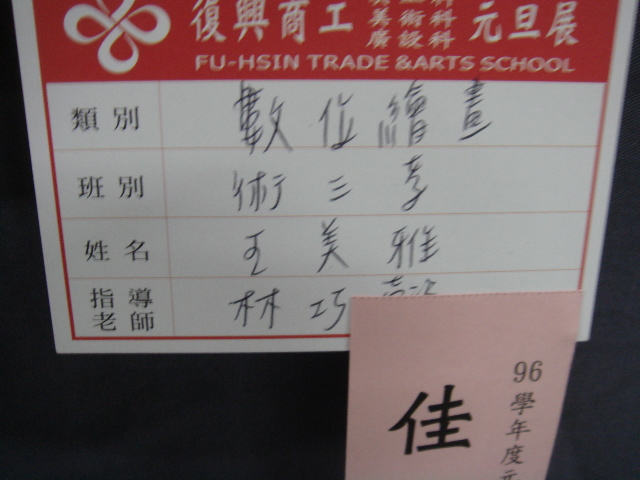 復興商工 美術科 廣設科 元旦展
FU-HSIN TRADE & ARTS SCHOOL
類別 數位繪畫
班別 術三孝
姓名 王美雅
指導老師 林巧
佳
96學年度元